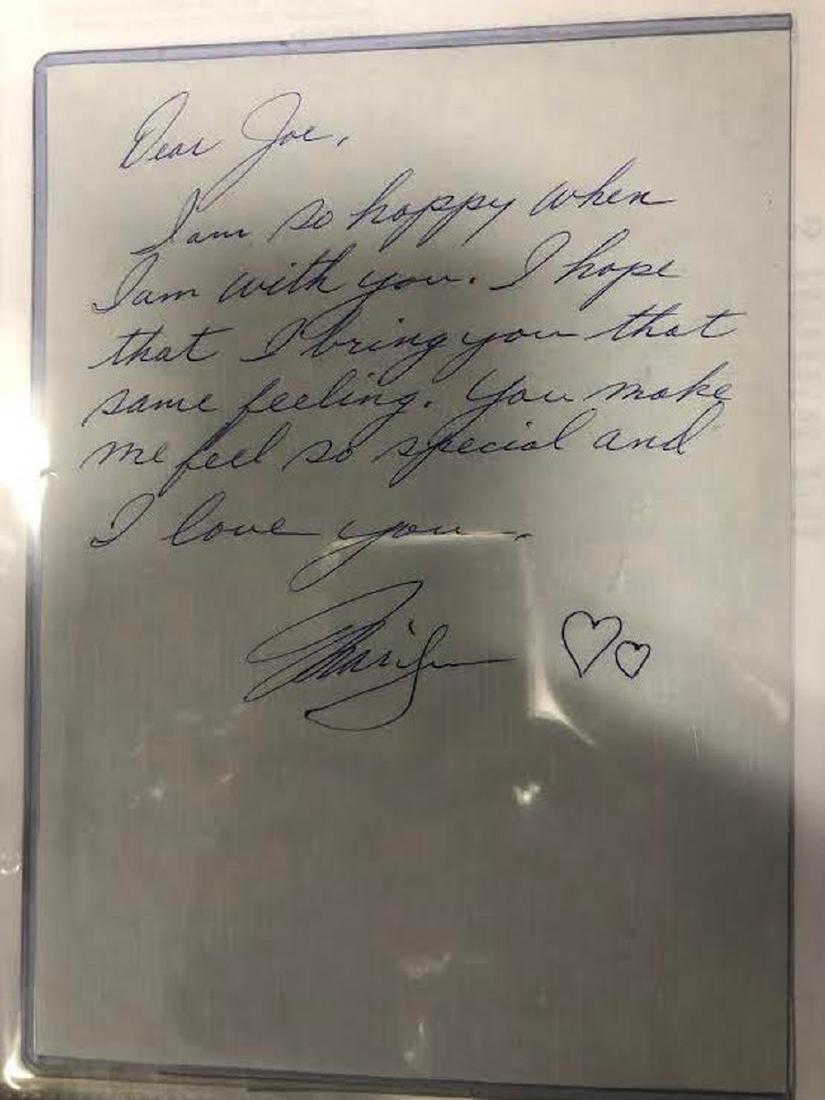 Dear Joe,
I am so happy when
I am with you. I hope
that I bring you that
same feeling. You make
me feel so special and
I love you.
Marilyn